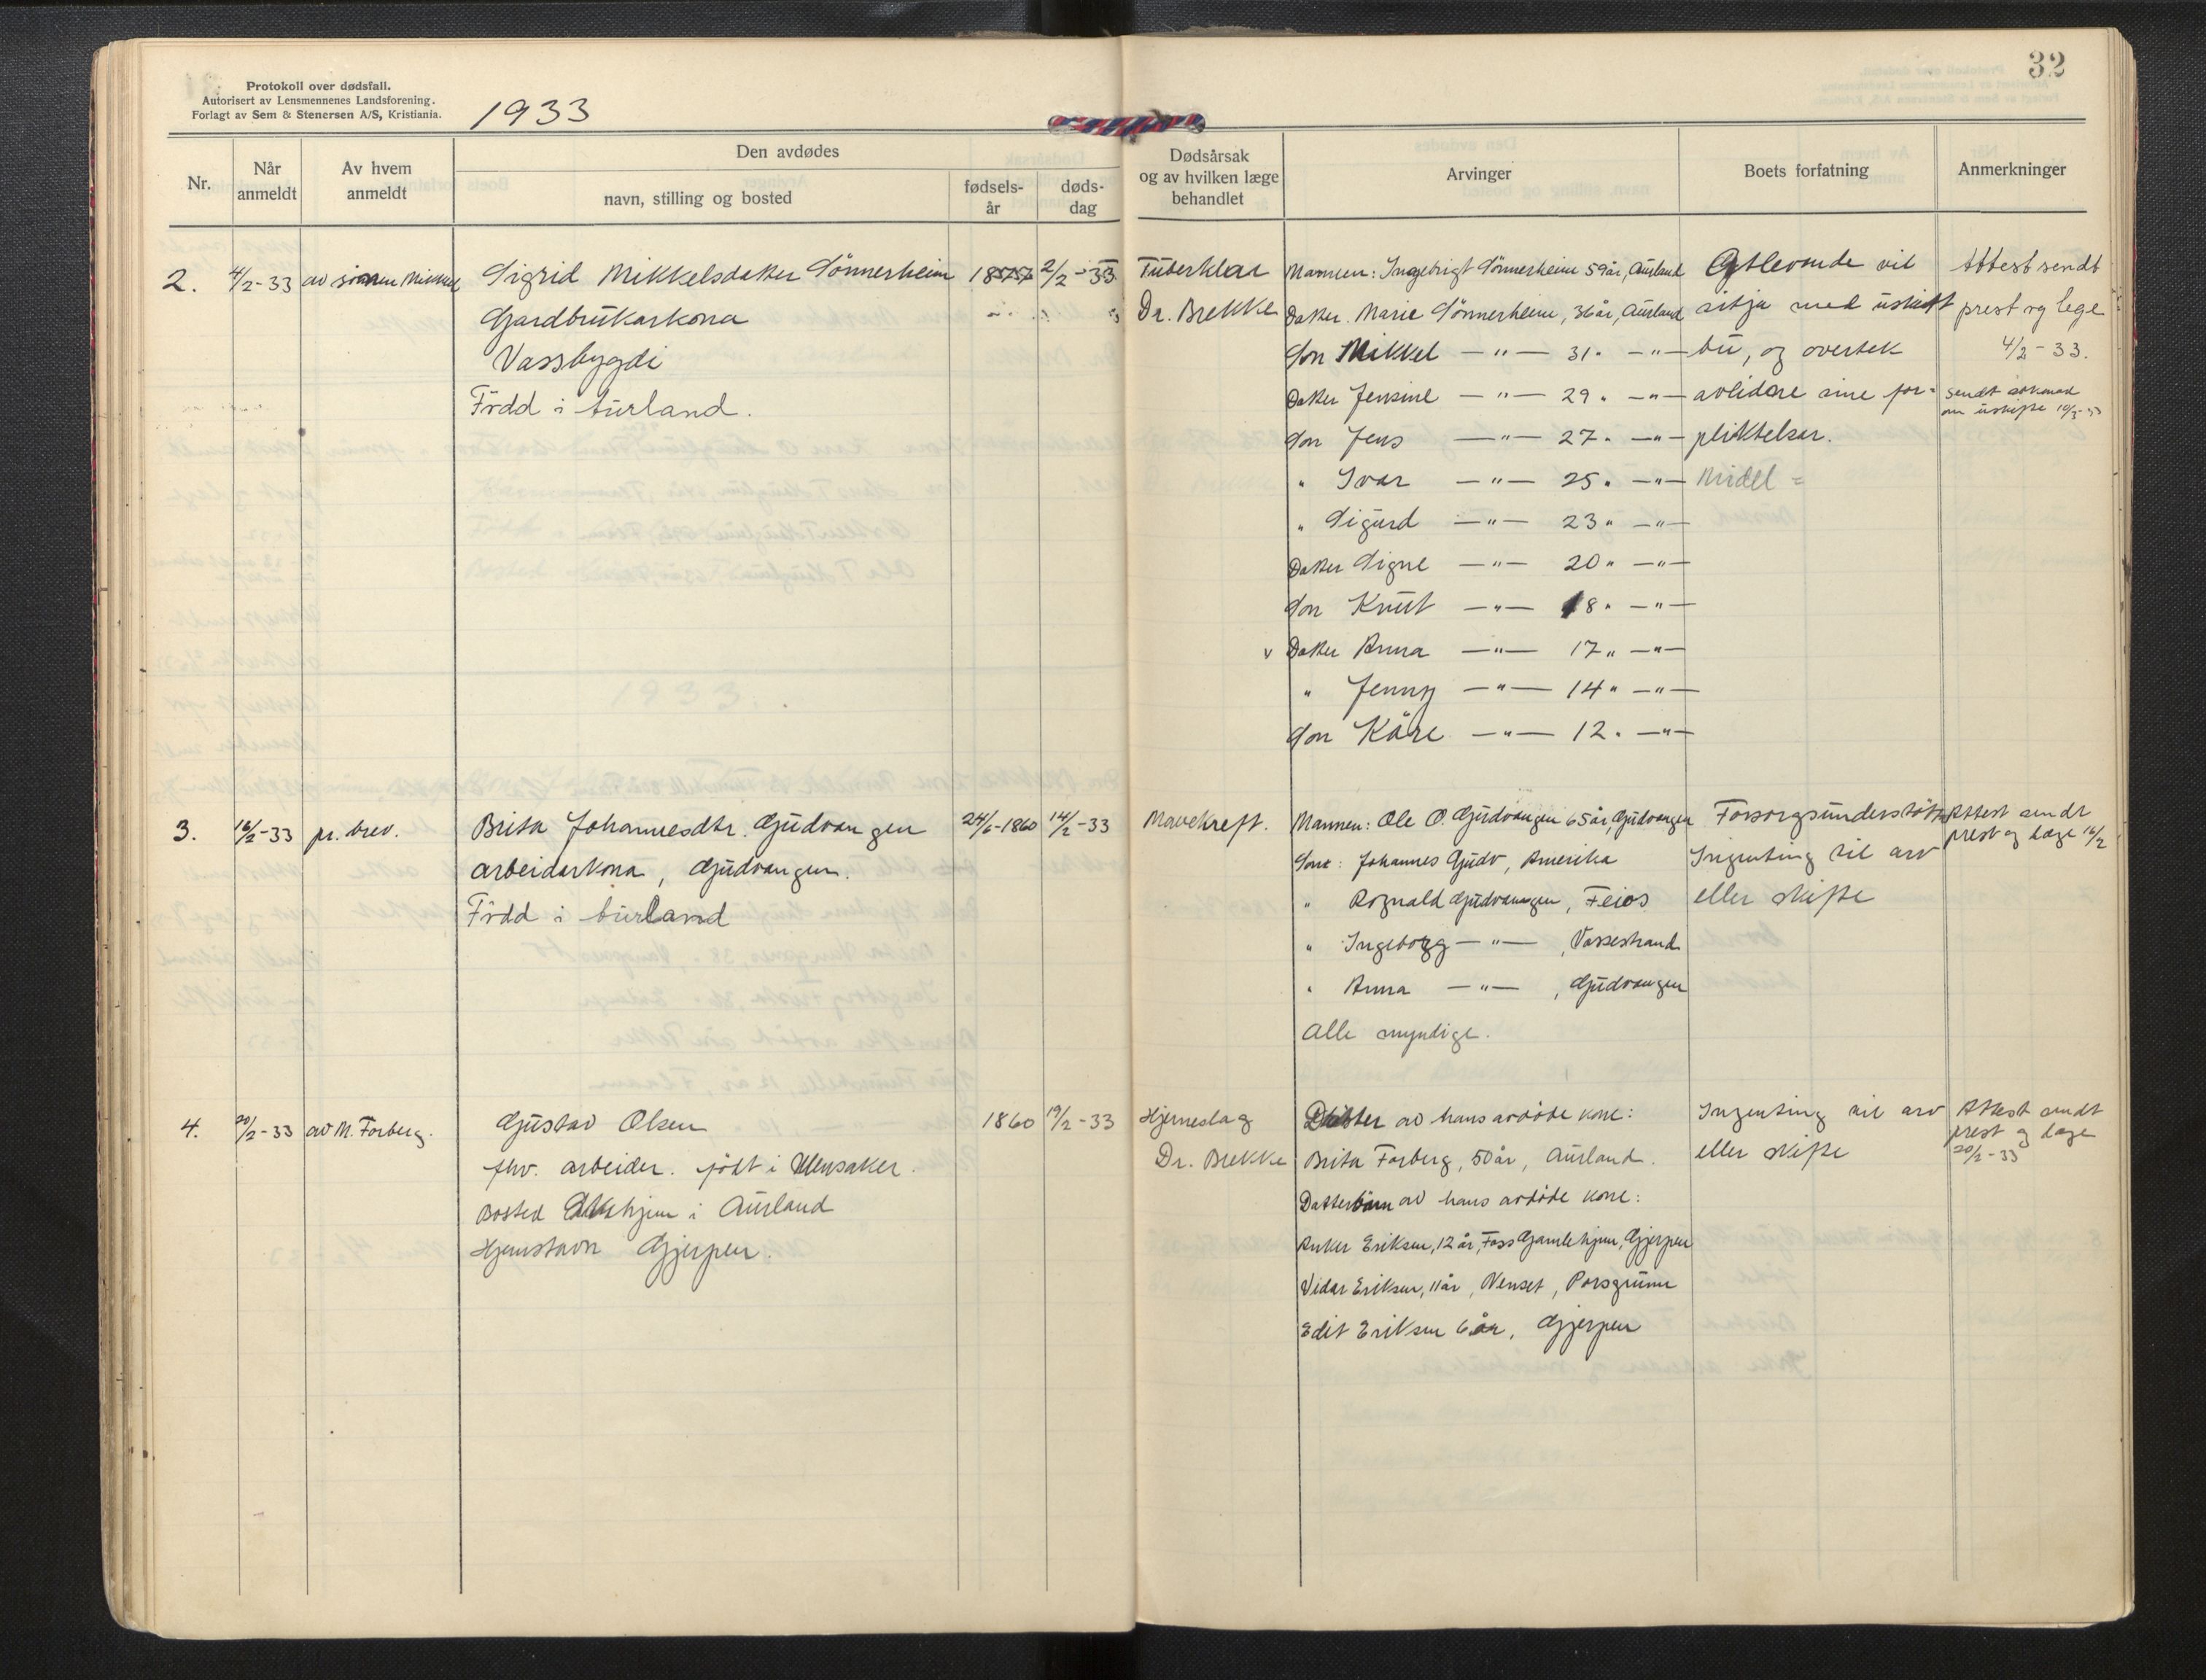 32
Protokoll over dødsfall.
Autorisert av Lensmennenes Landsforening.
Forlagt av Sem & Stenersen A/S, Kristiania.
1933
Nr.
Når anmeldt
Av hvem anmeldt
Den avdødes
navn, stilling og bosted
fødsels-år
døds-dag
Dødsårsak og av hvilken læge behandlet
Arvinger
Boets forfatning
Anmerkninger
2. 4/2-33 av sönnen Mikkel
Sigrid Mikkelsdatter Sönnerheim 2/2-33
Gardbrukarkona
Vassbygdi
Född i Aurland.
Tuberklar
Dr. Brekke
Mannen: Ingebrigt Sönnerheim 59 år, Aurland
Datter Marie Sönnerheim, 36 år, Aurland
Son Mikkel —"— 31 " —"—
Datter Jensine —"— 29 " —"—
Son Jens —"— 27 " —"—
" Ivar —"— 25 " —"—
" Sigurd —"— 23 " —"—
Datter Signe —"— 20 " —"—
Son Knut —"— 18 " —"—
v Datter Anna —"— 17 " —"—
" Jenny —"— 14 " —"—
Son Kåre —"— 12 " —"—
Attlevande vil
sitja med uskift
bu, og overtek
avlidne sine for=
pliktelser.
Midel =
Attest sendt
prest og lege
4/2-33.
sendt søknad
om uskifte
3. 16/2-33 pr. brev.
Brita Johannesdtr. Gudvangen 24/6-1860 14/2-33
arbeidarkona, Gudvangen.
Född i Aurland
Mavekreft.
Mannen: Ole O. Gudvangen 65 år, Gudvangen
Johannes Gudv, Amerika
" Rognald Gudvangen, Feios
" Ingeborg —"—, Vassestrand
" Anna —"—, Gudvangen
Alle myndige.
Forsorgsunderstöt
Ingenting til arv
eller skifte
Attest sendt
prest og læge 16/2
4. 20/2-33 av M. Forberg.
Gustav Olsen 1860 19/2-33
fhv. arbeider. födt i Ullensaker.
Bosted i Aurland
Hjemstavn Gjerpen.
Hjerneslag
Dr. Brekke
Datter av hans avdöde kone:
Brita Forberg, 50 år, Aurland.
Datterbarn av hans avdöde kone:
Anker Eriksen, 12 år, Foss Gamlehjem, Gjerpen
Vidar Eriksen, 11 år, Venset, Porsgrunn
Edit Eriksen 6 år, Gjerpen
Ingenting til arv
eller skifte
Attest sendt
prest og læge
20/2-33